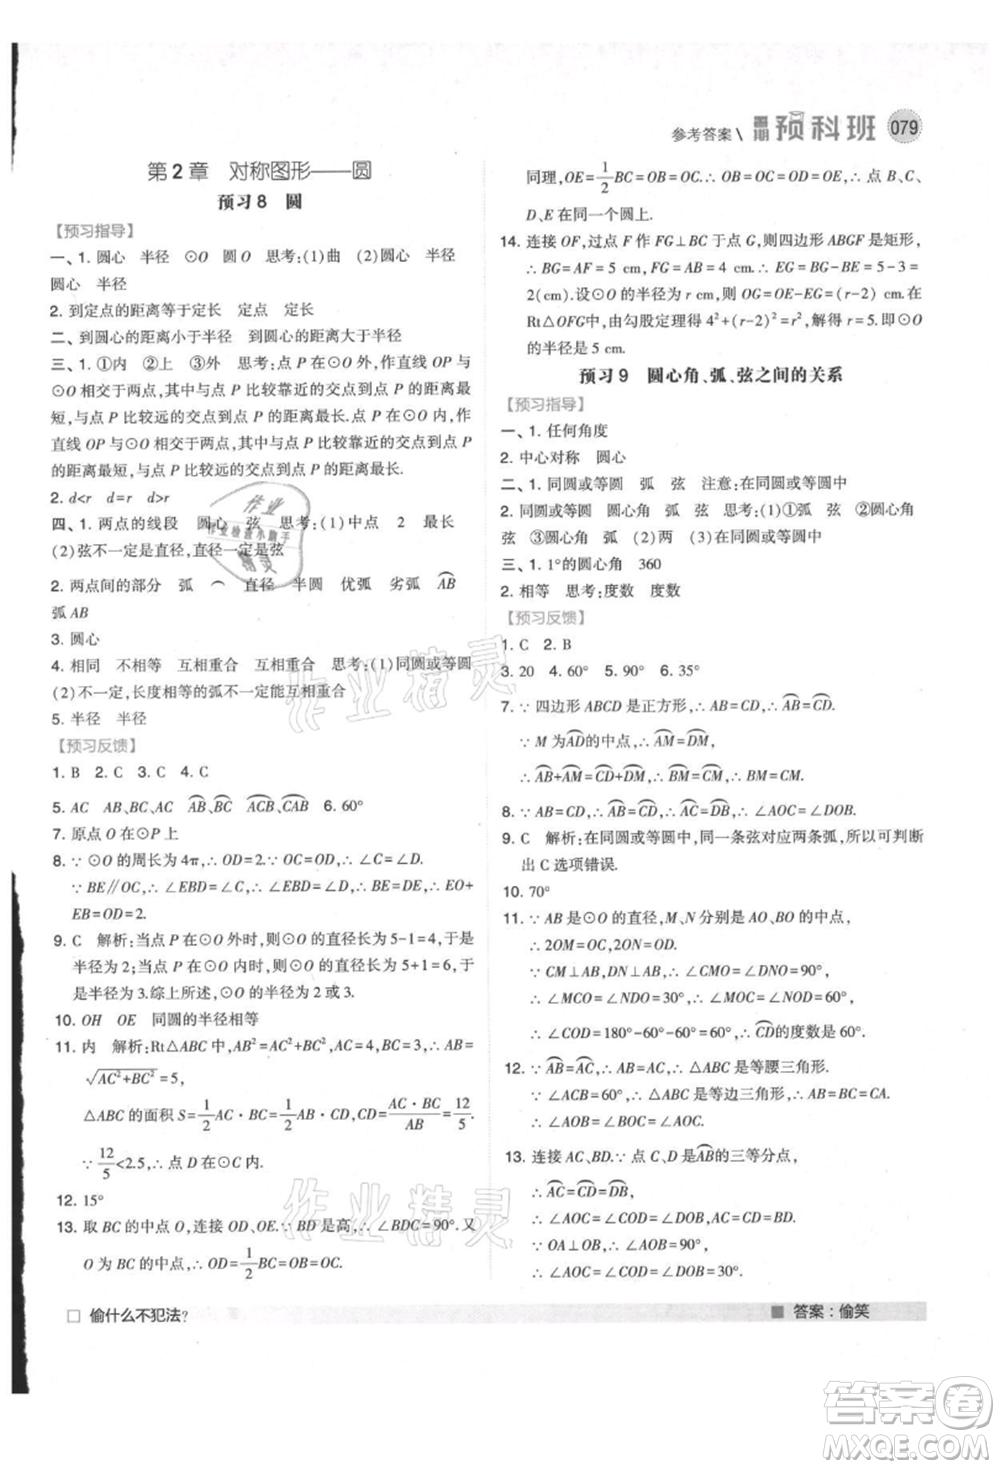 参考答案\ 暑期 预科班 079
第2章 对称图形——圆
预习8 圆
【预习指导】
一、1. 圆心 半径 ⊙O 圆O 思考:(1)曲 (2)圆心 半径
圆心 半径
2. 到定点的距离等于定长 定点 定长
二、到圆心的距离小于半径 到圆心的距离大于半径
三、1. ①内 ②上 ③外 思考:点P在⊙O外,作直线
OP与⊙O相交于两点,其中与点P比较靠近的交点到点P的距离
最短,与点P比较远的交点到点P的距离最长.点P在⊙O内,作
直线OP与⊙O相交于两点,其中与点P比较靠近的交点到点P
的距离最短,与点P比较远的交点到点P的距离最长.
2. d<r d=r d>r
四、1. 两点的线段 圆心 弦 思考:(1)中点 2 最长
(2)弦不一定是直径,直径一定是弦
2. 两点间的部分 弧 ⌒ 直径 半圆 优弧 劣弧 A͡B
弧AB
3. 圆心
4. 相同 不相等 互相重合 互相重合 思考:(1)同圆或等圆
(2)不一定,长度相等的弧不一定能互相重合
5. 半径 半径
【预习反馈】
1. B 2. C 3. C 4. C
5. AC AB、BC A͡B、B͡C A͡CB、C͡AB 6. 60°
7. 原点O在⊙P上
8. ∵ ⊙O的周长为4π,∴ OD=2.∵ OC=OD,∴ ∠C=∠D.
∵ BE∥DC,∴ ∠EBD=∠C.∴ ∠EBD=∠D.∴ BE=DE.∴ EO+
EB=EO+DE=OD=2
9. C 解析:当点P在⊙O外时,则⊙O的直径为5-1=4,于是
半径为2;当点P在⊙O内时,则⊙O的直径为5+1=6,于
是半径为3.综上所述,⊙O的半径为2或3.
10. OH OE 同圆的半径相等
11. 内 解析:Rt△ABC中,AB²=BC²,AC=4,BC=3,∴ AB=
√(AC²+BC²)=5,
△ABC的面积S=1/2 AC·BC=1/2 AB·CD,∴ CD=AC·BC/AB=12/5.
∵ 12/5<2.5,∴ 点D在⊙C内.
12. 15°
13. 取BC的中点O,连接OD、OE.∵ BD是高,∴ ∠BDC=90°.又
O为BC的中点,∴ OD=1/2 BC=OB=OC.
同理,OE=1/2 BC=OB=OC.∴ OB=OC=OD=OE.∴ 点B、C、
D、E在同一个圆上.
14. 连接OF,过点F作FG⊥BC于点G,则四边形ABGF是矩形,
∴ BG=AF=5 cm,FG=AB=4 cm.∴ OG=BG-BO=5-3=
2(cm).设⊙O的半径为r cm,则OG=OE-GE=r-2.在
Rt△OFG中,由勾股定理得4²+(r-2)²=r²,解得r=5.即⊙O
的半径为5 cm.
预习9 圆心角、弧、弦之间的关系
【预习指导】
一、1. 任何角度
2. 中心对称 圆心
二、1. 同圆或等圆 弧 弦 注意:在同圆或等圆中
2. 同圆或等圆 圆心角 弧 弦 思考:(1)①同圆或等圆中
②弦 ③圆心角 (2)两 (3)同圆或等圆中
三、1. 1°的圆心角 360
2. 相等 思考:度数 度数
【预习反馈】
1. C 2. B
3. 20 4. 60° 5. 90° 6. 35°
7. ∵ 四边形ABCD是正方形,∴ AB=CD.∴ A͡B=C͡D.
∵ M为A͡D的中点,∴ A͡M=D͡M.
∴ A͡B+A͡M=C͡D+D͡M,∴ B͡M=C͡M.∴ BM=CM.
8. ∵ AB=CD,∴ A͡B=C͡D.∴ A͡C=D͡B,∴ ∠AOC=∠DOB.
9. C 解析:在同圆或等圆中,同一条弦对应两条弧,所以可判断
出C选项错误.
10. 70°
11. ∵ AB是⊙O的直径,M、N分别是AO、BO的中点,
∴ 2OM=OC,2ON=OD.
∵ CM⊥AB,DN⊥AB,∴ ∠CMO=∠DNO=90°.
∴ ∠MCO=∠NDO=30°,∴ ∠MOC=∠NOD=60°,
∴ ∠COD=180°-60°-60°=60°,∴ C͡D的度数是60°.
12. ∵ A͡B=A͡C,∴ AB=AC,∴ △ABC是等腰三角形.
∵ ∠ACB=60°,∴ △ABC是等边三角形,
∴ AB=BC=CA.∴ ∠AOB=∠BOC=∠COA.
13. 连接AC、BD.∵ 点C、D是A͡B的三等分点,
∴ A͡C=C͡D=D͡B.
∴ AC=CD=DB,且∠AOC=1/3∠AOB=30°.
∵ OA=OB,∠AOB=90°,
∴ ∠OAB=∠OBA=45°,
∵ ∠AOC=∠BOD=30°,
□ 偷什么不犯法?
■ 答案:偷笑
作业
作业检查小助手
精灵
作业精灵
作业精灵
答案圈
MXQE.COM